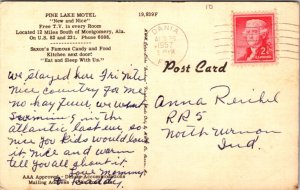 10
PINE LAKE MOTEL
"New and Nice"
Free T.V. in every Room
Located 12 Miles South of Montgomery, Ala.
On U.S. 82 and 231. Phone
Saxon's Famous Candy and Food
Kitchen next door!
"Eat and Sleep With Us"
19,939F
DANIA
1957
FLA
2¢
Post Card
we stayed here Fri nite
Nice Country for me
no hay fever, we went
Swimming in the
atlantic last eve, so
nice you kids would love
it, nice and warm
tell you all about it.
Love mommy
& Daddy
Anna Reichel
RR 5
North Vernon
Ind.
AAA Approved
Mailing Address